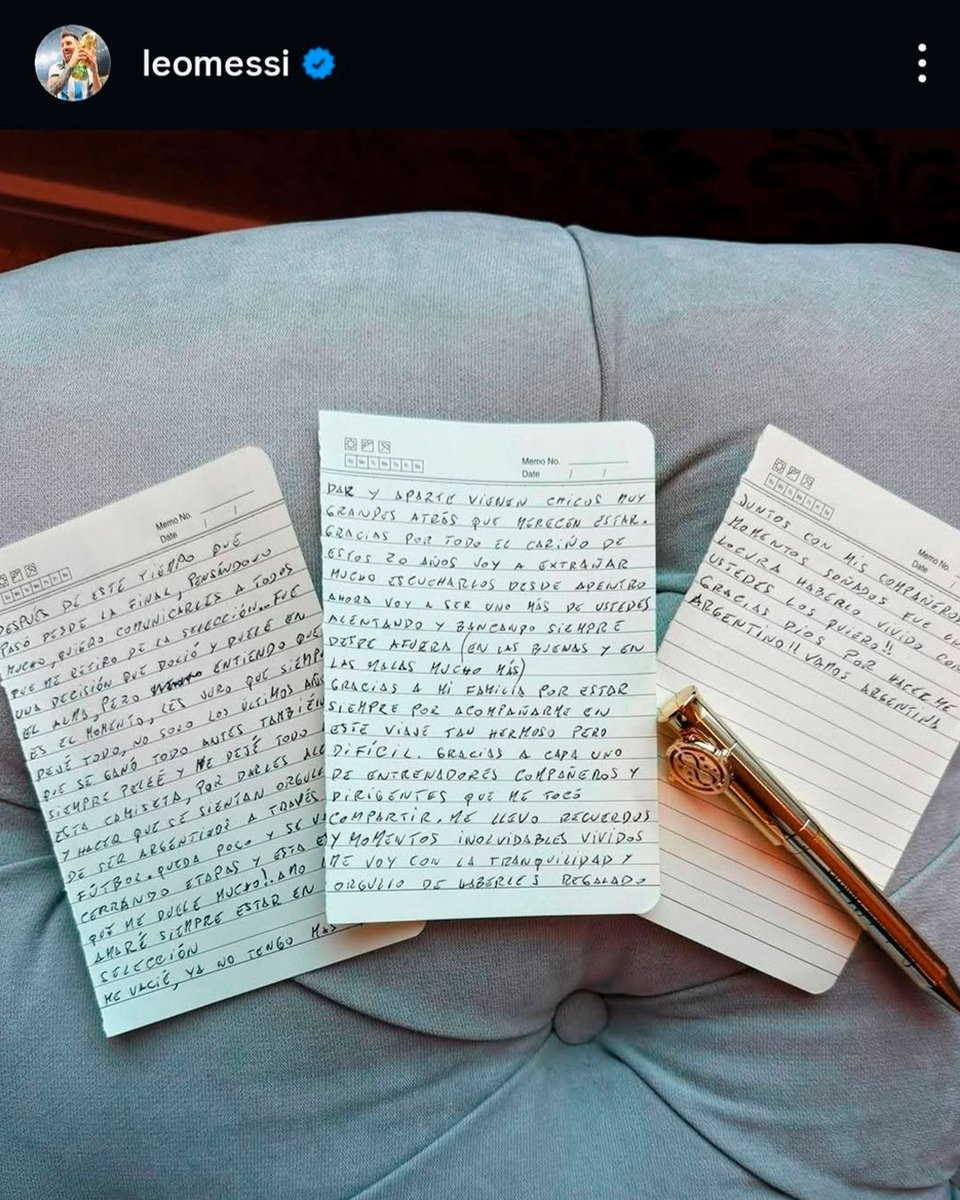 leomessi
Memo No.
Date / /
DESPUÉS DE ESTE TIEMPO QUE
PASÓ DESDE LA FINAL, PENSÁNDOLO
MUCHO, QUIERO COMUNICARLES A TODOS
QUE ME RETIRO DE LA SELECCIÓN.. FUE
UNA DECISIÓN QUE DOLIÓ Y DUELE EN
EL ALMA, PERO ENTIENDO QUE
ES EL MOMENTO, LES JURO QUE SIEMPRE
DEJÉ TODO, NO SOLO LOS ÚLTIMOS AÑOS
QUE SE GANÓ TODO ANTES TAMBIÉN
SIEMPRE PELEÉ Y ME DEJÉ TODO
ESTA CAMISETA, POR DARLES
Y HACER QUE SE SIENTAN
DE SER ARGENTINOS A TRAVÉS
FÚTBOL. QUEDA POCO Y SE
CERRANDO ETAPAS Y ESTA
QUE ME DUELE MUCHO!! AMO
AMARÉ SIEMPRE ESTAR EN
SELECCIÓN
ME VACIÉ, YA NO TENGO MAS
Memo No.
Date / /
DAR Y APARTE VIENEN CHICOS MUY
GRANDES ATRÁS QUE MERECEN ESTAR.
GRACIAS POR TODO EL CARIÑO DE
ESTOS 20 AÑOS VOY A EXTRAÑAR
MUCHO ESCUCHARLOS DESDE ADENTRO
AHORA VOY A SER UNO MÁS DE USTEDES
ALENTANDO Y BANCANDO SIEMPRE
DESDE AFUERA (EN LAS BUENAS Y EN
LAS MALAS MUCHO MÁS)
GRACIAS A MI FAMILIA POR ESTAR
SIEMPRE POR ACOMPAÑARME EN
ESTE VIAJE TAN HERMOSO PERO
DIFÍCIL. GRACIAS A CADA UNO
DE ENTRENADORES COMPAÑEROS Y
DIRIGENTES QUE ME TOCÓ
COMPARTIR. ME LLEVO RECUERDOS
Y MOMENTOS INOLVIDABLES VIVIDOS
ME VOY CON LA TRANQUILIDAD Y
ORGULLO DE HABERLES REGALADO
Memo No.
Date
JUNTOS CON MIS COMPAÑEROS
MOMENTOS SOÑADOS FUE UNA
LOCURA HABERLO VIVIDO CON
USTEDES LOS QUIERO!!
GRACIAS DIOS POR HACERME
ARGENTINO!! VAMOS ARGENTINA